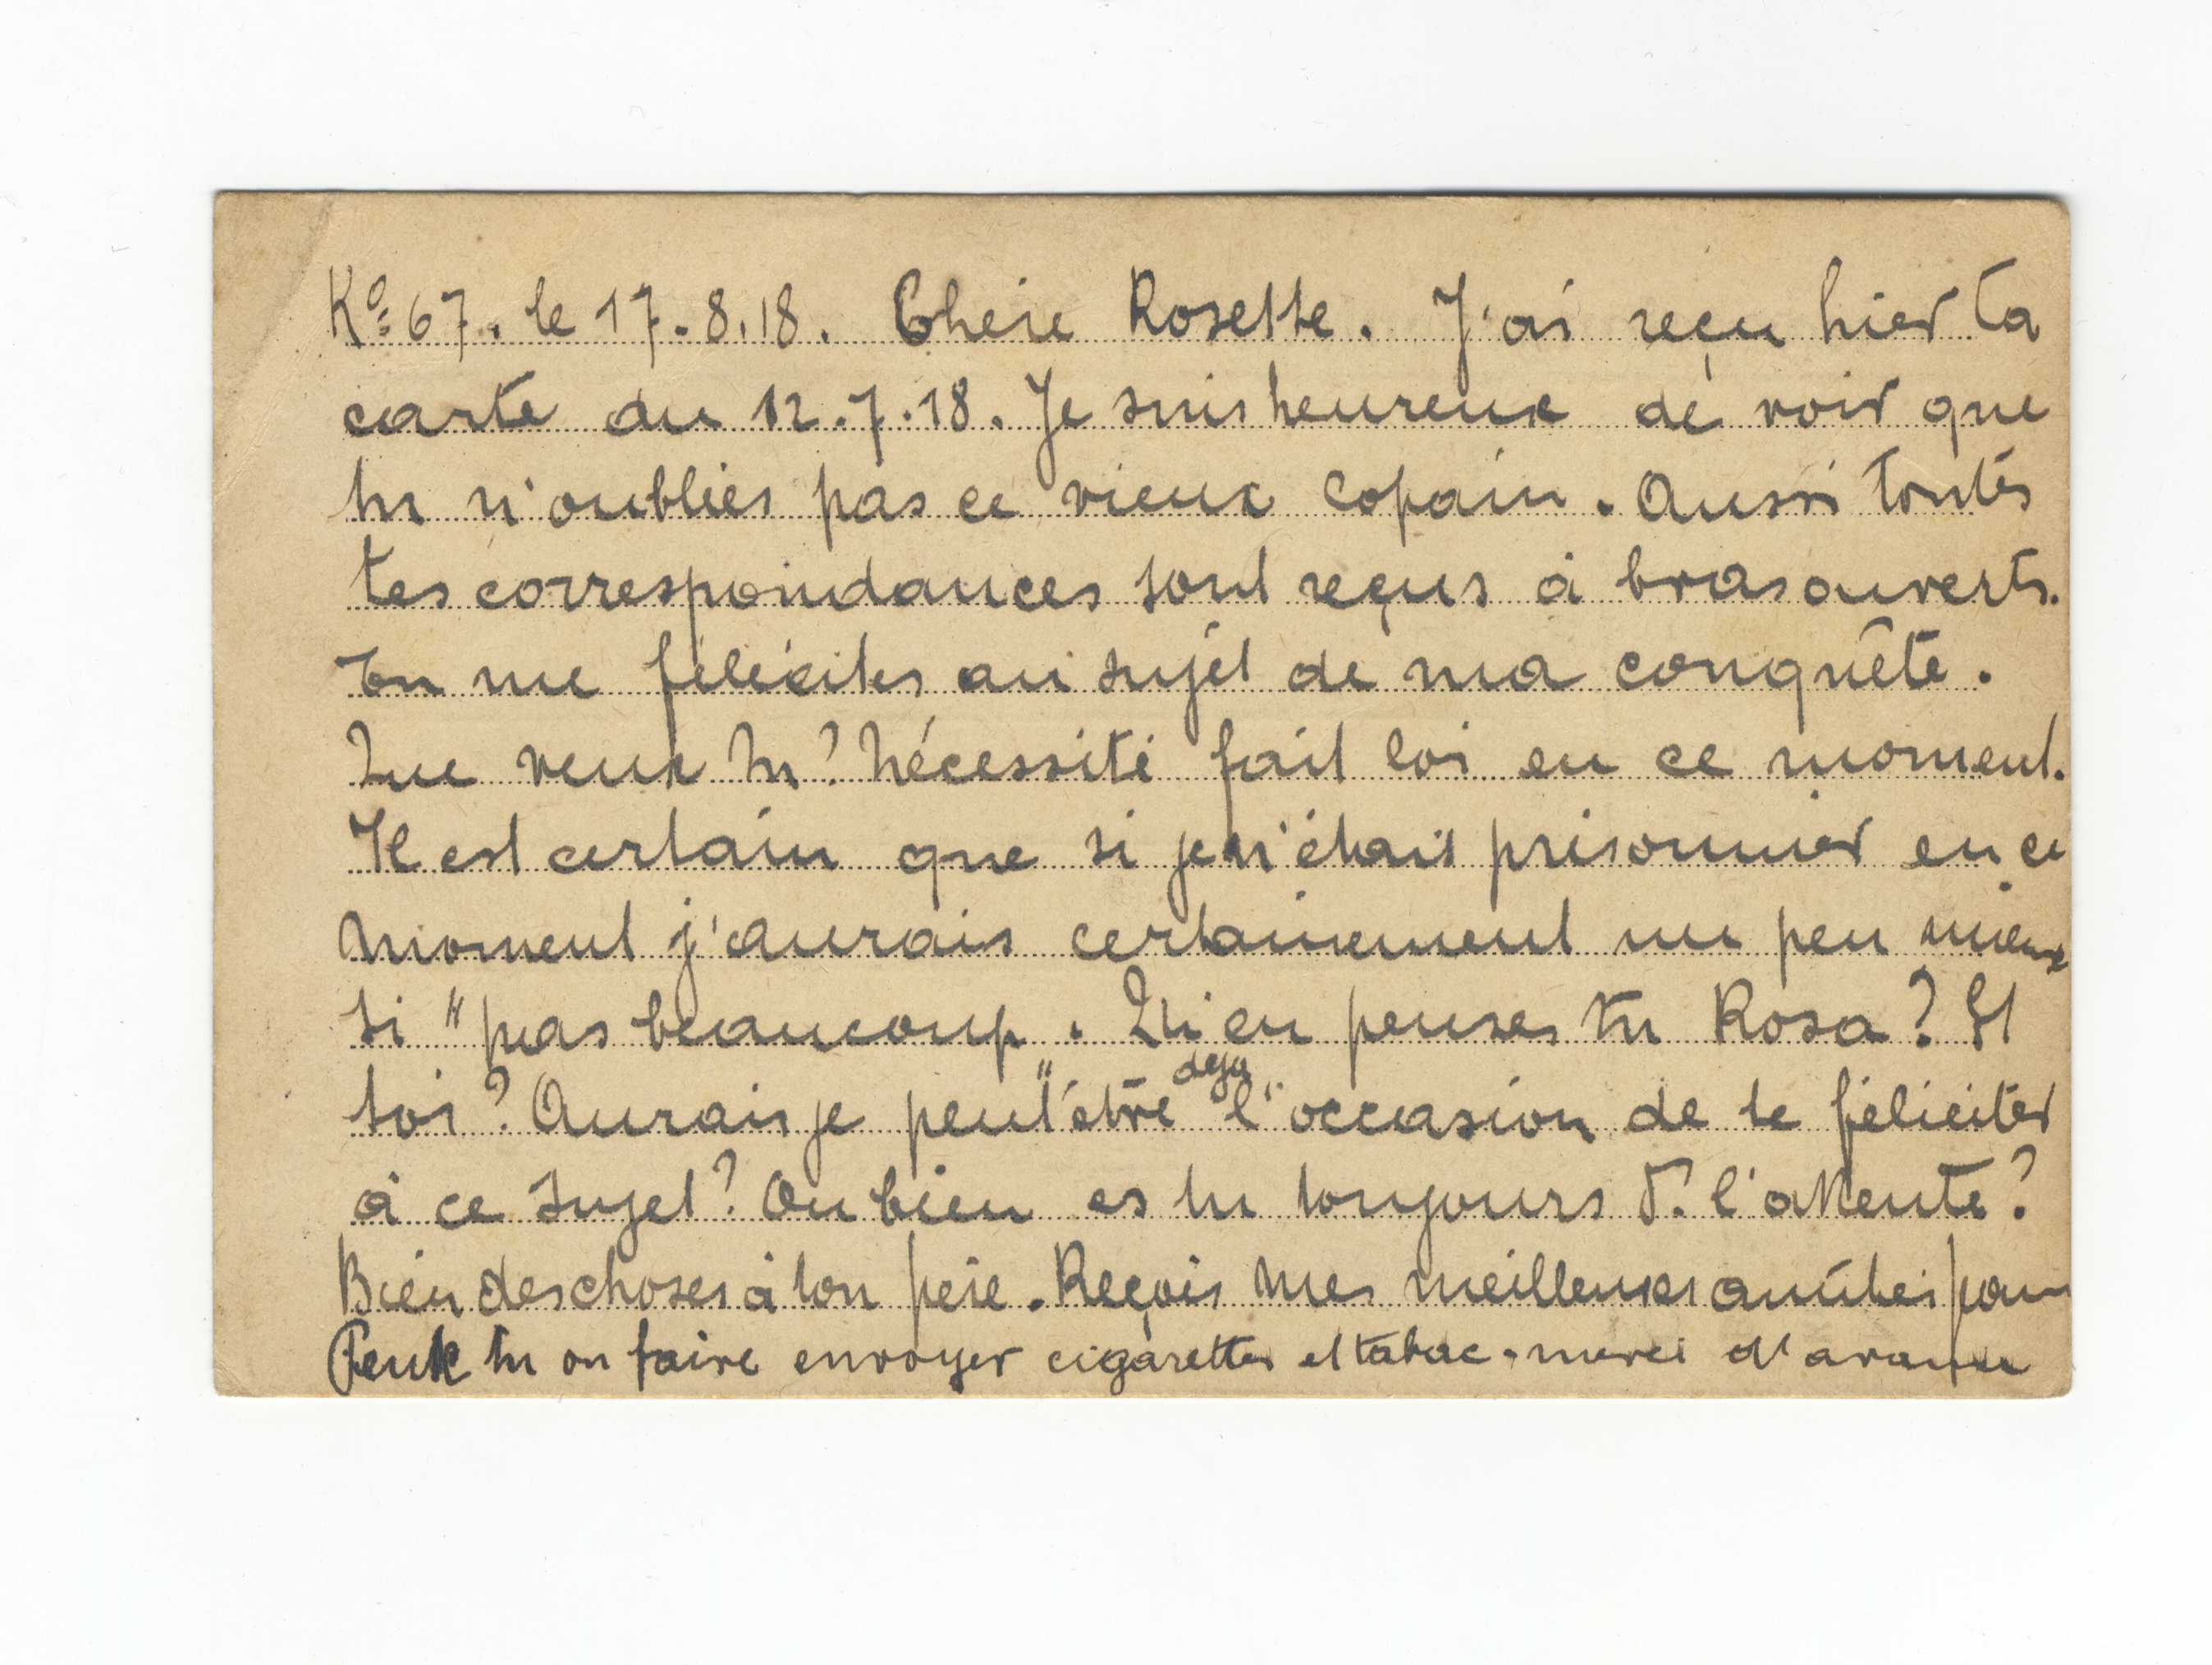 Ko 67. le 17.8.18. Chère Rosette. J'ai reçu hier ta
carte du 12.7.18. Je suis heureux de voir que
tu n'oublies pas ce vieux copain. Aussi toutes
tes correspondances sont reçus à bras ouverts.
Tu me félicites au sujet de ma conquête.
Que veux tu? Nécessité fait loi en ce moment.
Il est certain que si je n'étais prisonnier en ce
moment j'aurais certainement un peu mieux
si "pas beaucoup". Qu'en penses tu Rosa? Et
toi? Aurais je peut être déja l'occasion de te féliciter
à ce sujet? Ou bien es tu toujours d. l'attente?
Bien des choses à ton père. Reçois mes meilleures amitiés
Peux tu ou faire envoyer cigarettes et tabac. merci d'avance